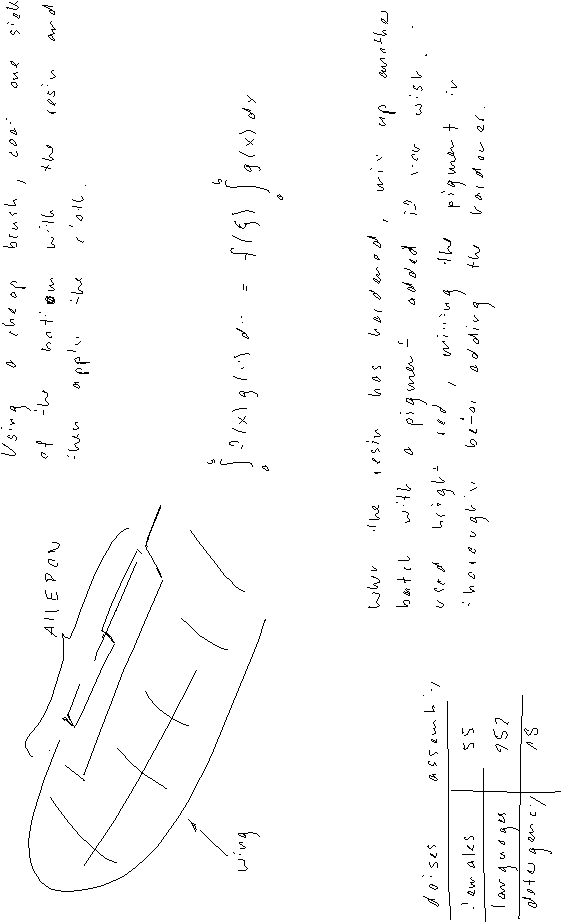 Using a cheap brush, coat one side
of the bottom with the resin and
then apply the cloth.
∫_a^b f(x) g(x) dx = f(ξ) ∫_a^b g(x) dx
When the resin has hardened, mix up another
batch with a pigment added if you wish.
used bright red, mixing the pigment in
thoroughly before adding the hardener.
AIlERON
wing
doises assembly
females 55
languages 952
detergency 18